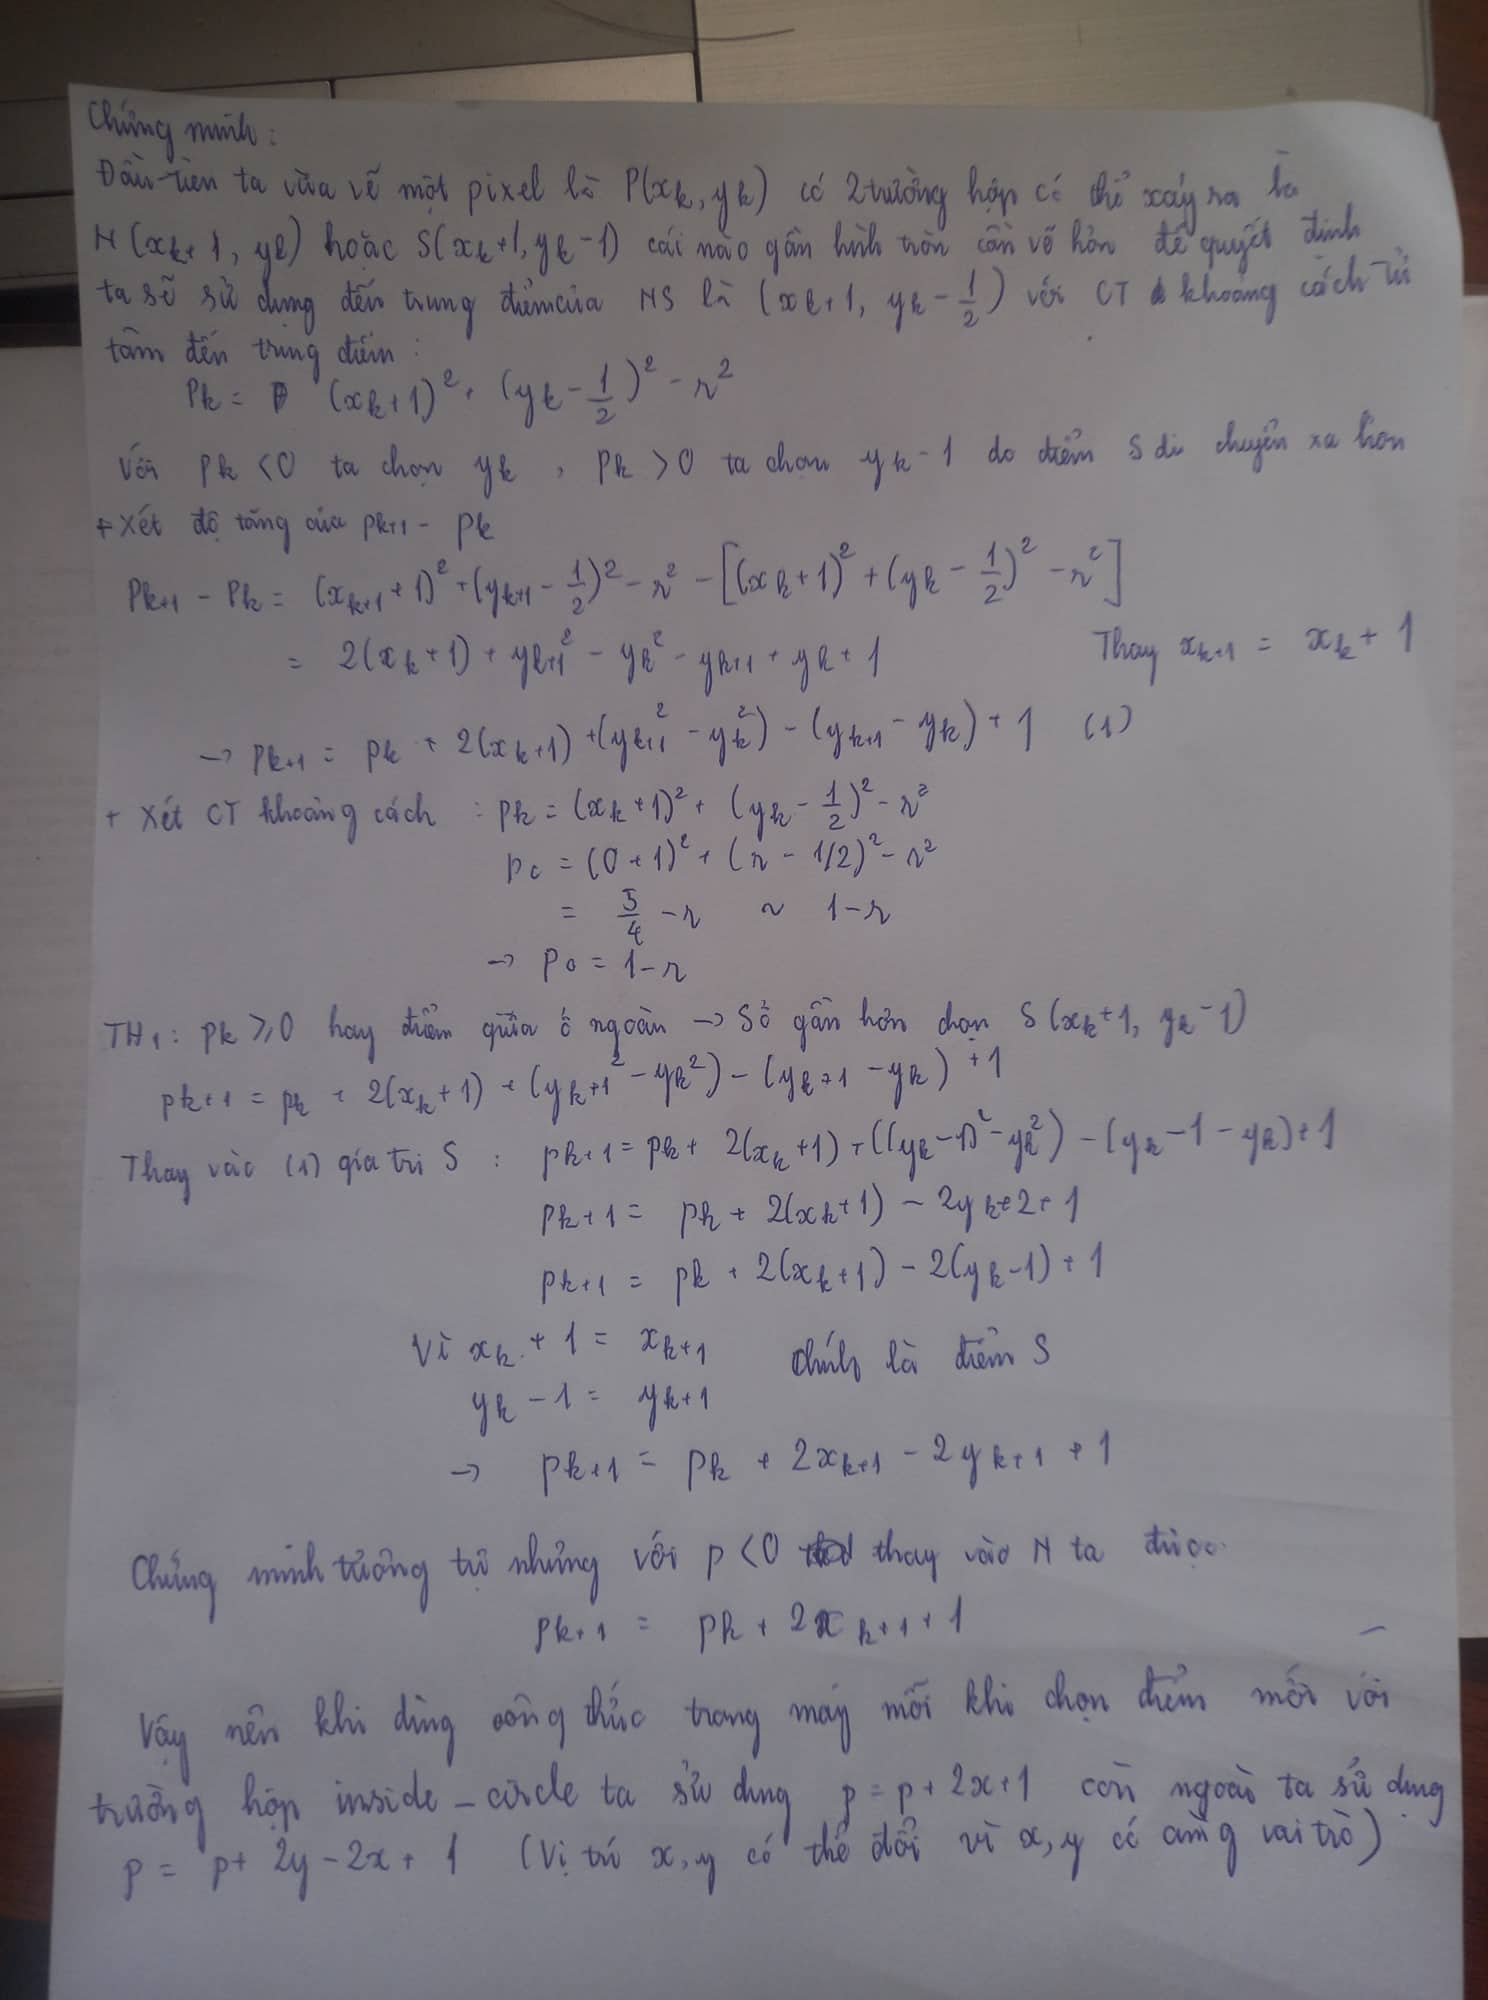 Chứng minh:
Đầu tiên ta vừa vẽ một pixel là P(xₖ, yₖ) có 2 trường hợp có thể xảy ra là
N(xₖ+1, yₖ) hoặc S(xₖ+1, yₖ-1) cái nào gần hình tròn cần vẽ hơn để quyết định
ta sẽ sử dụng đến trung điểm của NS là (xₖ+1, yₖ - 1/2) với CT khoảng cách từ
tâm đến trung điểm:
Pₖ = (xₖ+1)² + (yₖ - 1/2)² - r²
Với pₖ < 0 ta chọn yₖ , pₖ > 0 ta chọn yₖ-1 do điểm S di chuyển xa hơn
+ Xét độ tăng của pₖ₊₁ - pₖ
Pₖ₊₁ - Pₖ = (xₖ₊₁ + 1)² + (yₖ₊₁ - 1/2)² - r² - [(xₖ+1)² + (yₖ - 1/2)² - r²]
= 2(xₖ+1) + yₖ₊₁² - yₖ² - yₖ₊₁ + yₖ + 1 Thay xₖ₊₁ = xₖ + 1
→ Pₖ₊₁ = pₖ + 2(xₖ+1) + (yₖ₊₁² - yₖ²) - (yₖ₊₁ - yₖ) + 1 (1)
+ Xét CT khoảng cách : pₖ = (xₖ+1)² + (yₖ - 1/2)² - r²
p₀ = (0+1)² + (r - 1/2)² - r²
= 5/4 - r ~ 1-r
→ p₀ = 1-r
TH₁: pₖ ⩾ 0 hay điểm giữa ở ngoài → S ở gần hơn chọn S(xₖ+1, yₖ-1)
pₖ₊₁ = pₖ + 2(xₖ+1) + (yₖ₊₁² - yₖ²) - (yₖ₊₁ - yₖ) + 1
Thay vào (1) giá trị S : pₖ₊₁ = pₖ + 2(xₖ+1) + ((yₖ-1)² - yₖ²) - (yₖ-1-yₖ)+1
pₖ₊₁ = pₖ + 2(xₖ+1) - 2yₖ+2+1
pₖ₊₁ = pₖ + 2(xₖ+1) - 2(yₖ-1) + 1
Vì xₖ + 1 = xₖ₊₁ chính là điểm S
yₖ - 1 = yₖ₊₁
→ pₖ₊₁ = pₖ + 2xₖ₊₁ - 2yₖ₊₁ + 1
Chứng minh tương tự nhưng với p < 0 thay vào N ta được
pₖ₊₁ = pₖ + 2xₖ₊₁ + 1
Vậy nên khi dùng công thức trong máy mỗi khi chọn điểm mới với
trường hợp inside_circle ta sử dụng p = p + 2x+1 còn ngoài ta sử dụng
p = p + 2y - 2x + 1 (Vị trí x, y có thể đổi vì x, y có cùng vai trò)